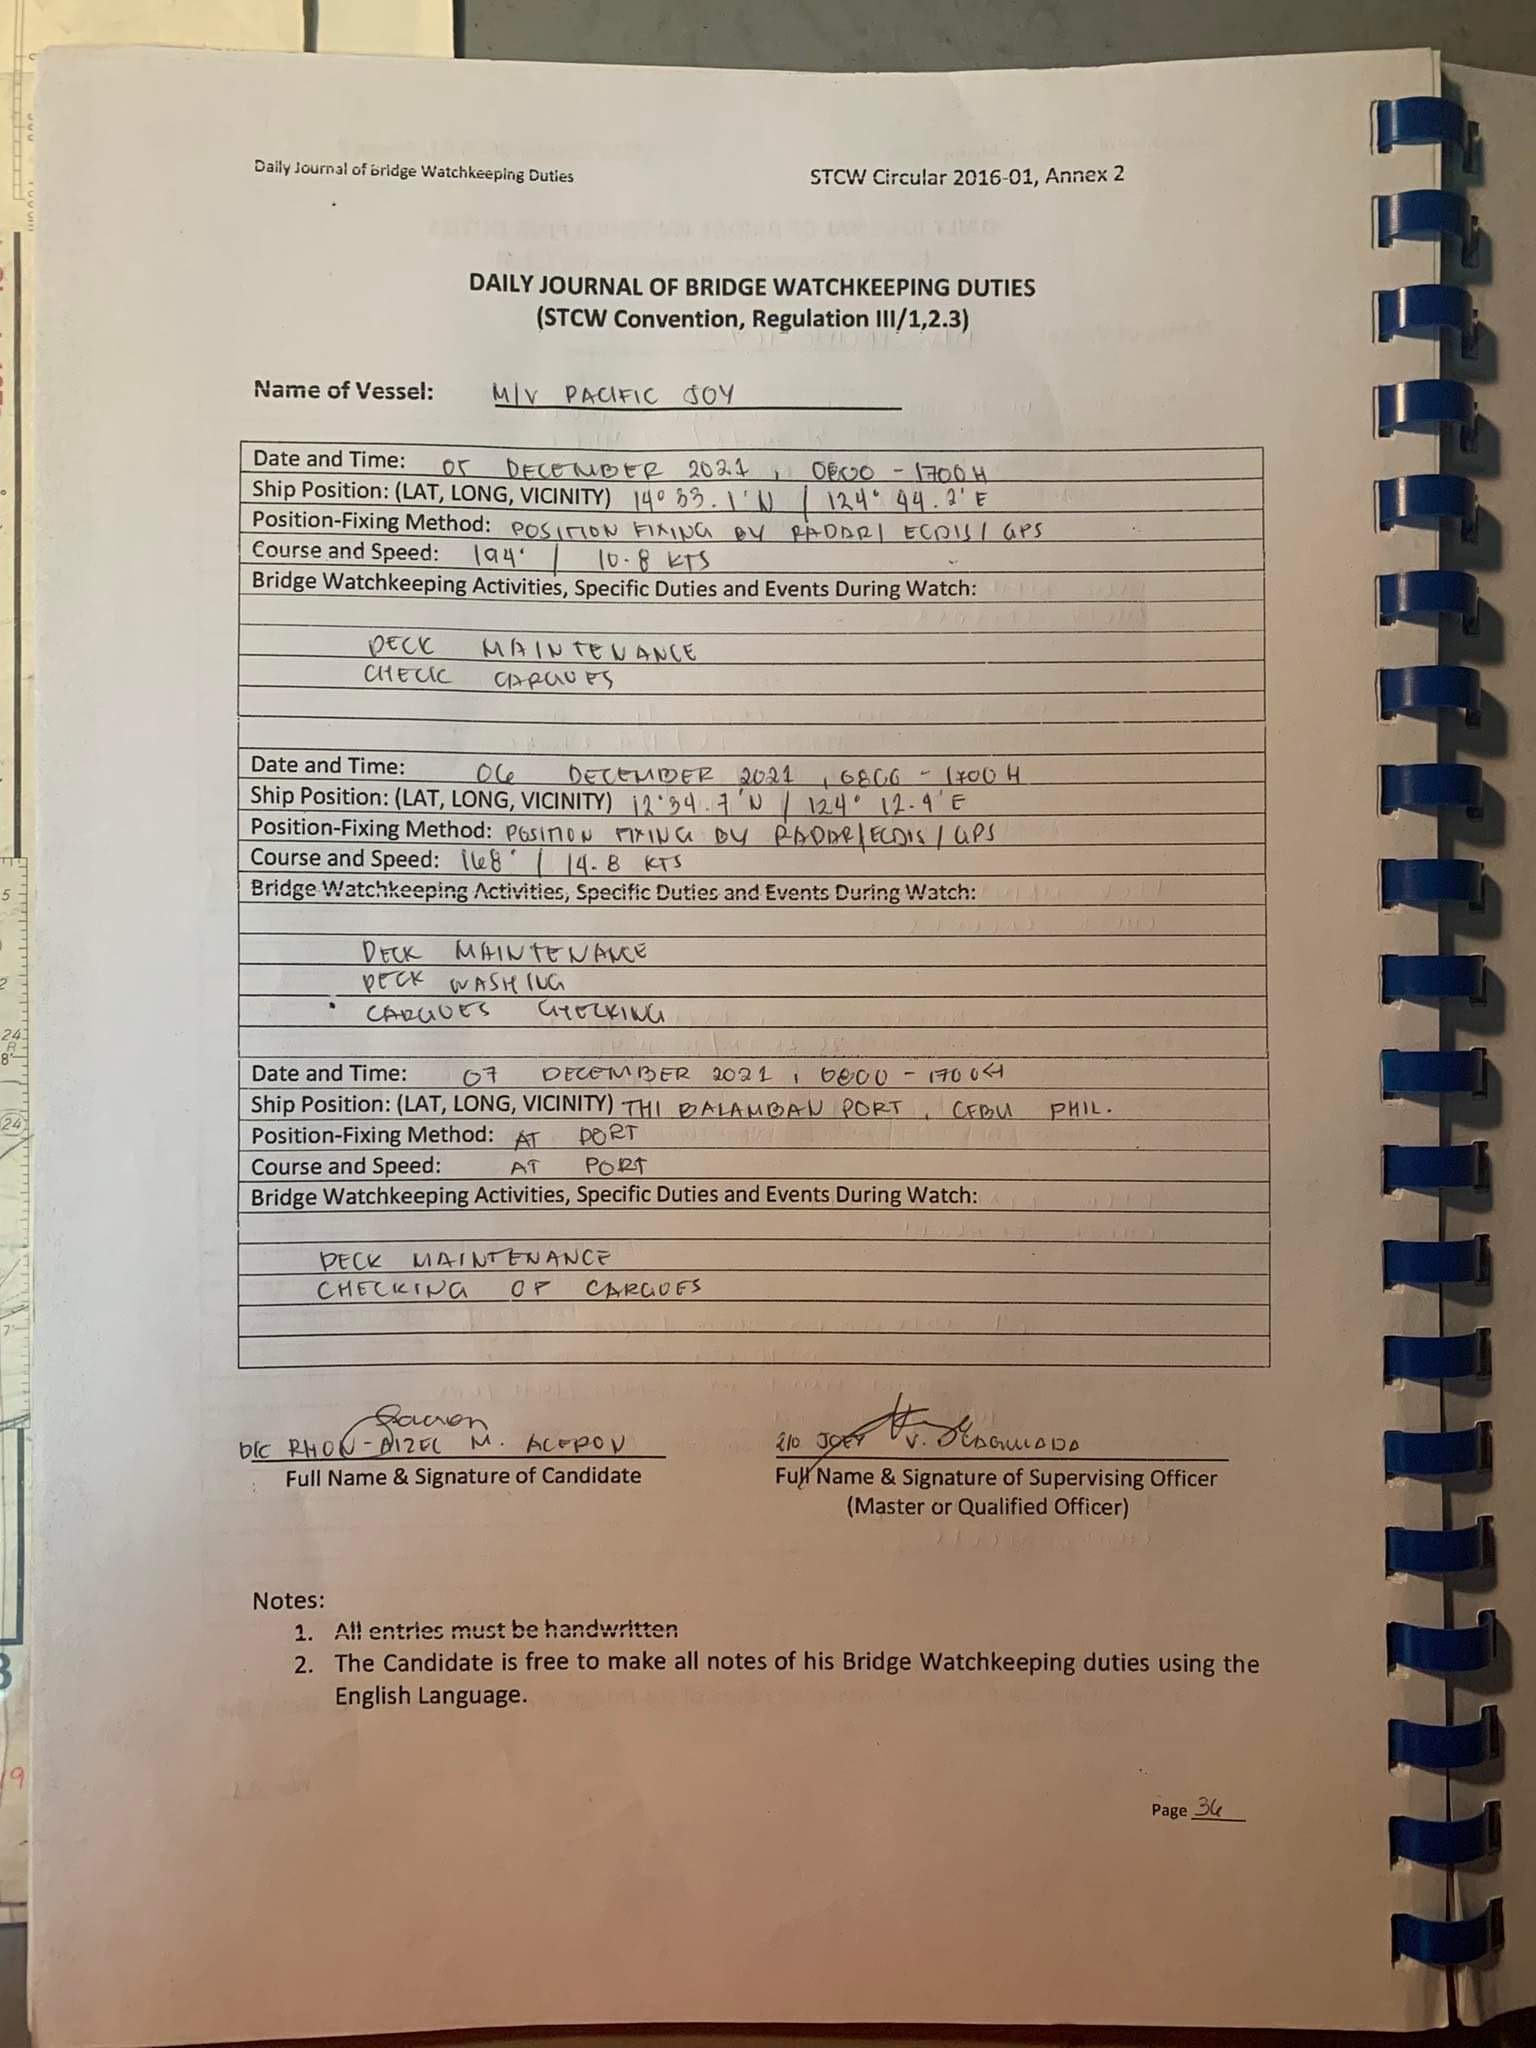 Daily Journal of Bridge Watchkeeping Duties STCW Circular 2016-01, Annex 2
DAILY JOURNAL OF BRIDGE WATCHKEEPING DUTIES
(STCW Convention, Regulation III/1,2.3)
Name of Vessel: M/V PACIFIC JOY
Date and Time: 05 DECEMBER 2021, 0800 - 1700H
Ship Position: (LAT, LONG, VICINITY) 14° 33.1'N / 124° 44.2'E
Position-Fixing Method: POSITION FIXING BY RADAR/ ECDIS/ GPS
Course and Speed: 194° / 10.8 KTS
Bridge Watchkeeping Activities, Specific Duties and Events During Watch:
DECK MAINTENANCE
CHECK CARGOES
Date and Time: 06 DECEMBER 2021, 0800 - 1700H
Ship Position: (LAT, LONG, VICINITY) 12°34.7'N / 124° 12.9'E
Position-Fixing Method: POSITION FIXING BY RADAR/ECDIS/GPS
Course and Speed: 168° / 14.8 KTS
Bridge Watchkeeping Activities, Specific Duties and Events During Watch:
DECK MAINTENANCE
DECK WASHING
CARGOES CHECKING
Date and Time: 07 DECEMBER 2021, 0800 - 1700H
Ship Position: (LAT, LONG, VICINITY) THI BALAMBAN PORT, CEBU PHIL.
Position-Fixing Method: AT PORT
Course and Speed: AT PORT
Bridge Watchkeeping Activities, Specific Duties and Events During Watch:
DECK MAINTENANCE
CHECKING OF CARGOES
D/C RHON-AIZEL M. ACERON 2/O JOEY V.
Full Name & Signature of Candidate Full Name & Signature of Supervising Officer
(Master or Qualified Officer)
Notes:
1. All entries must be handwritten
2. The Candidate is free to make all notes of his Bridge Watchkeeping duties using the
English Language.
Page 36